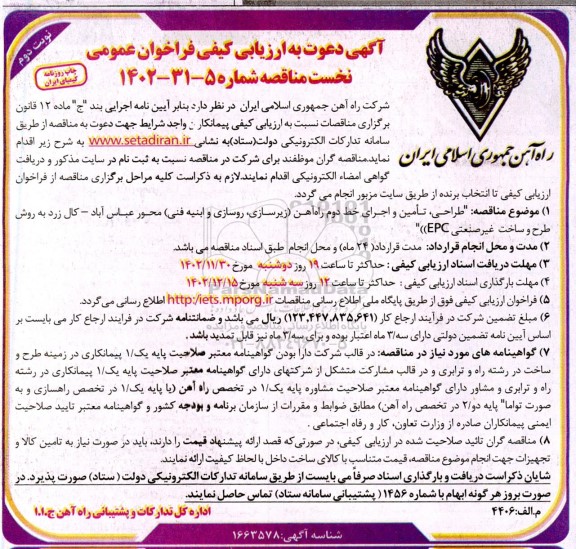 نوبت دوم
آگهی دعوت به ارزیابی کیفی فراخوان عمومی
نخست مناقصه شماره ۵-۳۱-۱۴۰۲
چاپ روزنامه
کیمیای ایران
راه‌آهن جمهوری اسلامی ایران
شرکت راه آهن جمهوری اسلامی ایران در نظر دارد بنابر آیین نامه اجرایی بند "ج" ماده ۱۲ قانون
برگزاری مناقصات نسبت به ارزیابی کیفی پیمانکاران واجد شرایط جهت دعوت به مناقصه از طریق
سامانه تدارکات الکترونیکی دولت(ستاد)به نشانی www.setadiran.ir به شرح زیر اقدام
نماید.مناقصه گران موظفند برای شرکت در مناقصه نسبت به ثبت نام در سایت مذکور و دریافت
گواهی امضاء الکترونیکی اقدام نمایند.لازم به ذکراست کلیه مراحل برگزاری مناقصه از فراخوان
ارزیابی کیفی تا انتخاب برنده از طریق سایت مزبور انجام می گردد.
۱) موضوع مناقصه: "طراحی، تأمین و اجرای خط دوم راه‌آهن (زیرسازی، روسازی و ابنیه فنی) محور عباس آباد – کال زرد به روش
طرح و ساخت غیرصنعتی EPC))"
۲) مدت و محل انجام قرارداد: مدت قرارداد( ۲۴ ماه) و محل انجام طبق اسناد مناقصه می باشد.
۳) مهلت دریافت اسناد ارزیابی کیفی : حداکثر تا ساعت ۱۹ روز دوشنبه مورخ ۱۴۰۲/۱۱/۳۰
۴) مهلت بارگذاری اسناد ارزیابی کیفی : حداکثر تا ساعت ۱۲ روز سه شنبه مورخ ۱۴۰۲/۱۲/۱۵
۵) فراخوان ارزیابی کیفی فوق از طریق پایگاه ملی اطلاع رسانی مناقصات http:/iets.mporg.ir اطلاع رسانی می‌گردد.
۶) مبلغ تضمین شرکت در فرآیند ارجاع کار (۱۲۳,۴۴۷,۸۳۵,۶۴۱) ریال می باشد و ضمانتنامه شرکت در فرایند ارجاع کار می بایست بر
اساس آیین نامه تضمین دولتی دارای سه/۳ ماه اعتبار بوده و برای سه/۳ ماه نیز قابل تمدید باشد.
۷) گواهینامه های مورد نیاز در مناقصه: در قالب شرکت دارا بودن گواهینامه معتبر صلاحیت پایه یک/۱ پیمانکاری در زمینه طرح و
ساخت در رشته راه و ترابری و در قالب مشارکت متشکل از شرکتهای دارای گواهینامه معتبر صلاحیت پایه یک/۱ پیمانکاری در رشته
راه و ترابری و مشاور دارای گواهینامه معتبر صلاحیت مشاوره پایه یک/۱ در تخصص راه آهن (یا پایه یک/۱ در تخصص راهسازی و به
صورت تواما" پایه دو/۲ در تخصص راه آهن) مطابق ضوابط و مقررات از سازمان برنامه و بودجه کشور و گواهینامه معتبر تایید صلاحیت
ایمنی پیمانکاران صادره از وزارت تعاون، کار و رفاه اجتماعی .
۸) مناقصه گران تائید صلاحیت شده در ارزیابی کیفی، در صورتی‌که قصد ارائه پیشنهاد قیمت را دارند، باید در صورت نیاز به تامین کالا و
تجهیزات جهت انجام موضوع مناقصه، قیمت متناسب با کالای ساخت داخل با لحاظ کیفیت ارائه نمایند.
شایان ذکراست دریافت و بارگذاری اسناد صرفاً می بایست از طریق سامانه تدارکات الکترونیکی دولت ( ستاد) صورت پذیرد. در
صورت بروز هر گونه ابهام با شماره ۱۴۵۶ ( پشتیبانی سامانه ستاد) تماس حاصل نمایند.
م.الف:۴۴۰۶
اداره کل تدارکات و پشتیبانی راه آهن ج.ا.ا
شناسه آگهی:۱۶۶۳۵۷۸